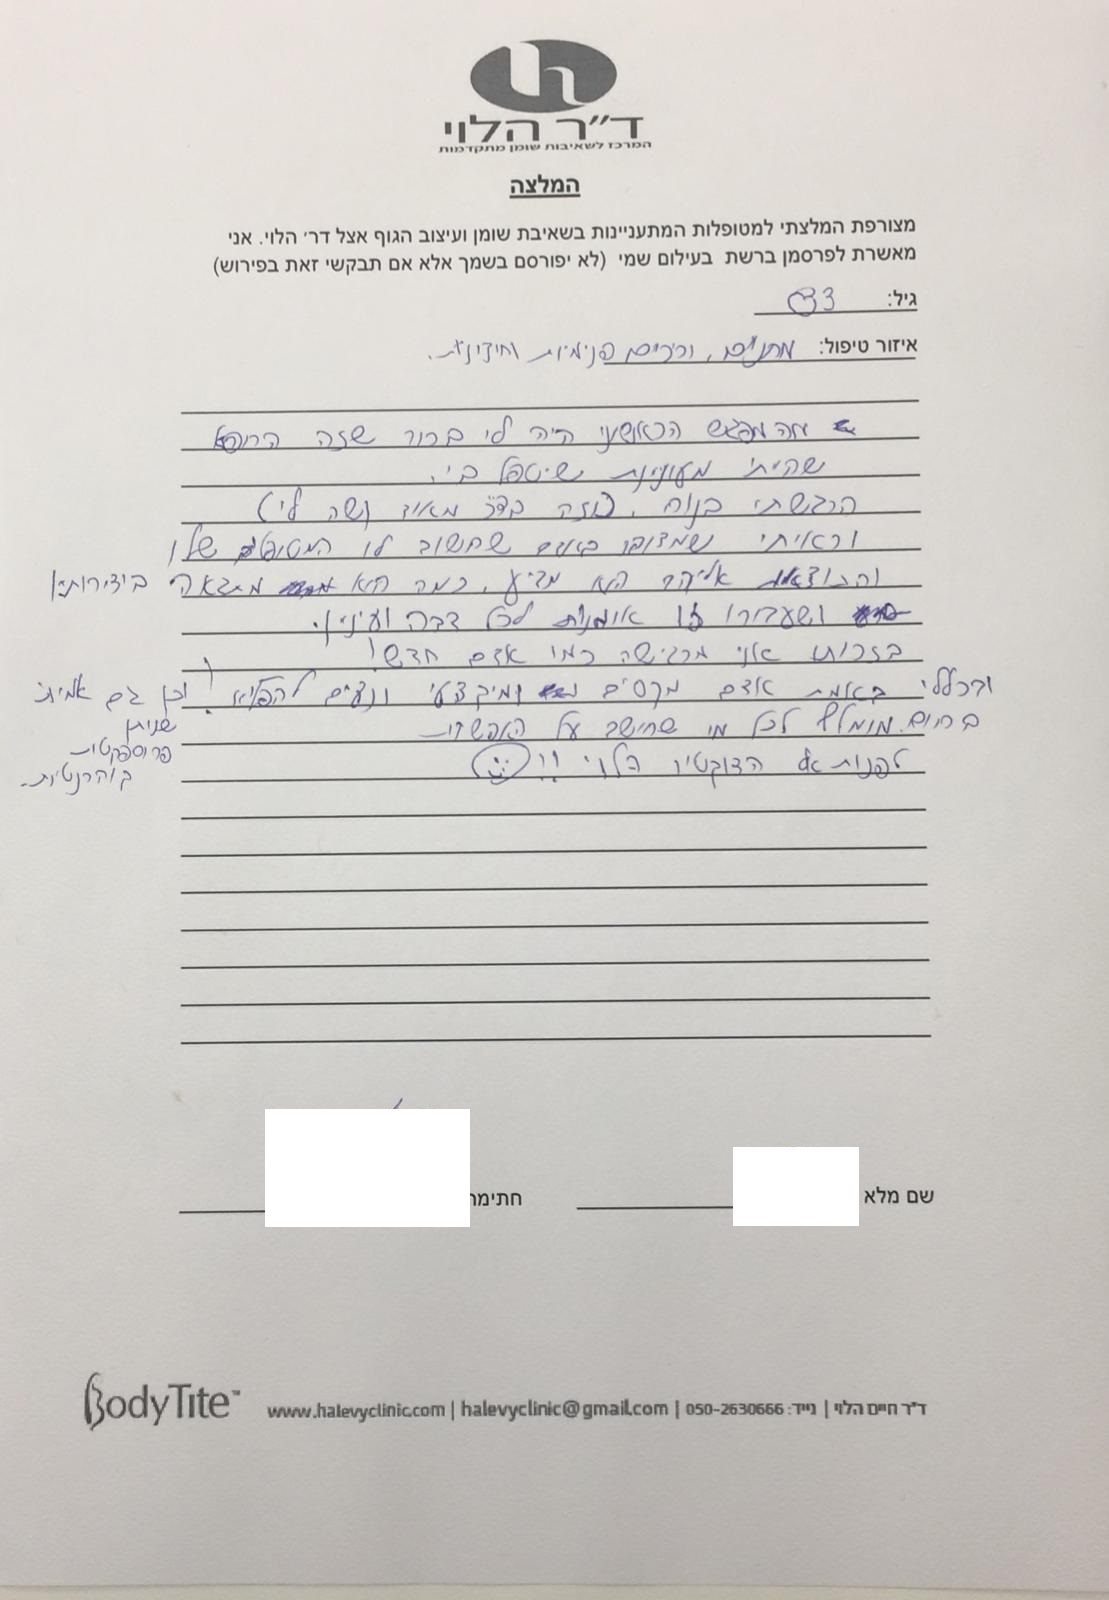 ד״ר הלוי
המרכז לשאיבות שומן מתקדמות
המלצה
מצורפת המלצתי למטופלות המתעניינות בשאיבת שומן ועיצוב הגוף אצל דר׳ הלוי. אני
מאשרת לפרסמן ברשת בעילום שמי (לא יפורסם בשמך אלא אם תבקשי זאת בפירוש)
גיל: 33
איזור טיפול: מתניים, ירכיים פנימיות וחיצוניות.
מהמפגש הראשוני היה לי ברור שזה הרופא
שהייתי מעוניינת שיטפל בי.
הרגשתי בנוח, וזה בדר מאוד קשה לי)
וראיתי שמצדו באמת שחשוב לו המטופלים שלו
והתוצאות אליהם הוא מגיע, כמה הוא מתגאה ביצירותיו
ושעבורו זו אומנות לכל דבר ועיניין.
בזכותו אני מרגישה כמו אדם חדש!
ובכללי באמת אדם מקסים ומיקצועי ונעים להפליא! וכן גם אמיתי
שנותן
פרוספקטיבות
קוהרנטיות.
בחום מומלץ לכל מי שחושב על האפשרות
לפנות אל הדוקטור הלוי !!
שם מלא
חתימה
BodyTite™ www.halevyclinic.com | halevyclinic@gmail.com | ד״ר חיים הלוי | נייד: 050-2630666